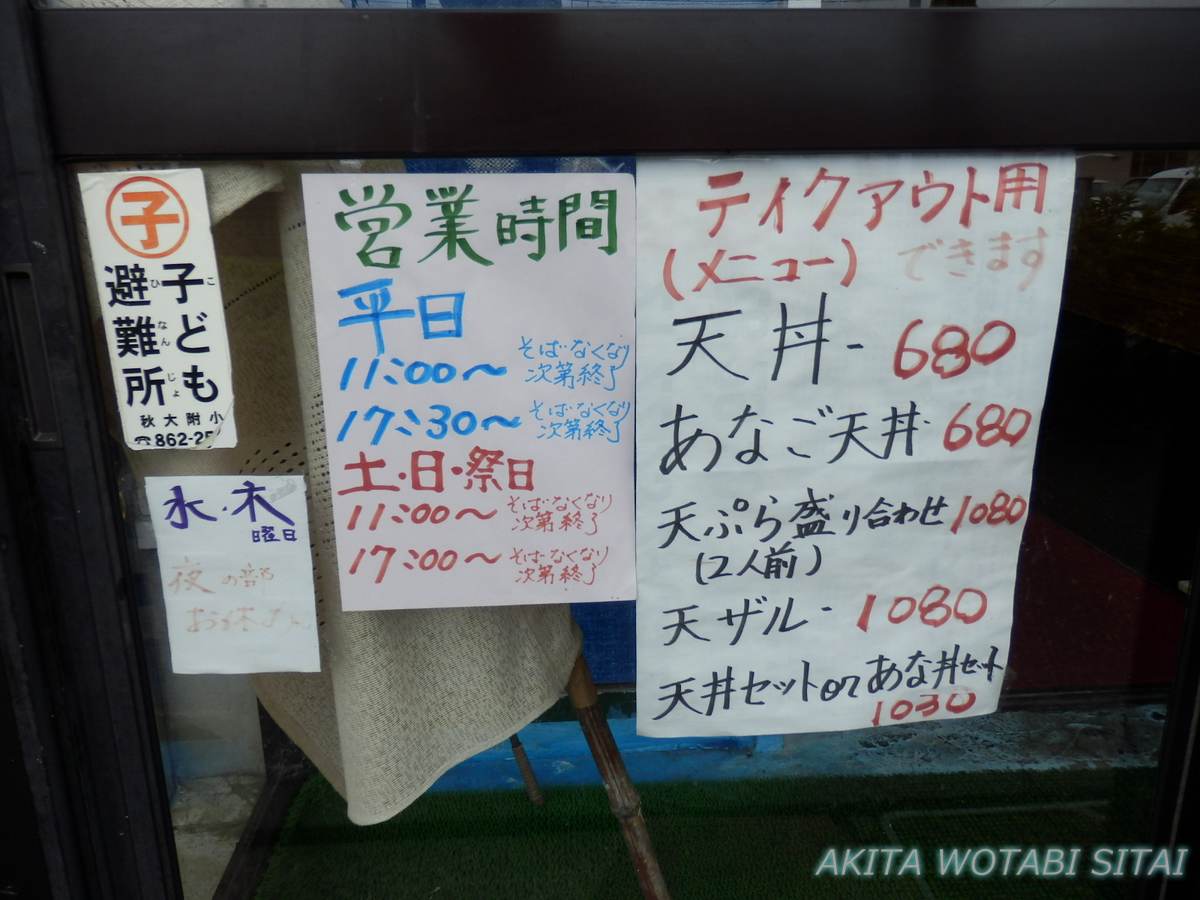 子
子ども
避難所
こ
ひ なん じょ
秋大附小
☎862-25
水・木
曜日
夜の部
お休み
営業時間
平日
11:00〜 そばなくなり次第終了
17:30〜 そばなくなり次第終了
土・日・祭日
11:00〜 そばなくなり次第終了
17:00〜 そばなくなり次第終了
テイクアウト用
(メニュー) できます
天丼- 680
あなご天丼- 680
天ぷら盛り合わせ 1080
(2人前)
天ザル- 1080
天丼セットorあな丼セット
1030
AKITA WOTABI SITAI